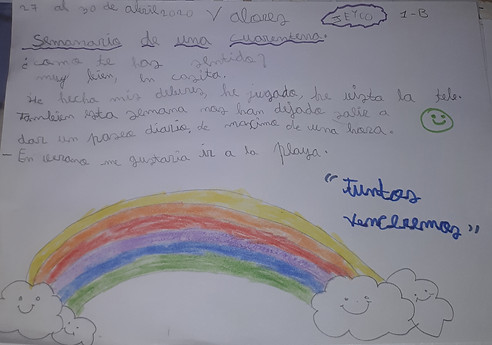 27 al 30 de abril 2020 Valores JEYCO 1-B
Semanario de una cuarentena.
¿como te has sentido?
muy bien, en casita.
He hecho mis deberes, he jugado, he vista la tele.
Tambien esta semana nos han dejado salir a
dar un paseo diario, de maximo de una hora.
- En verano me gustaria ir a la playa.
"Juntos
venceremos"